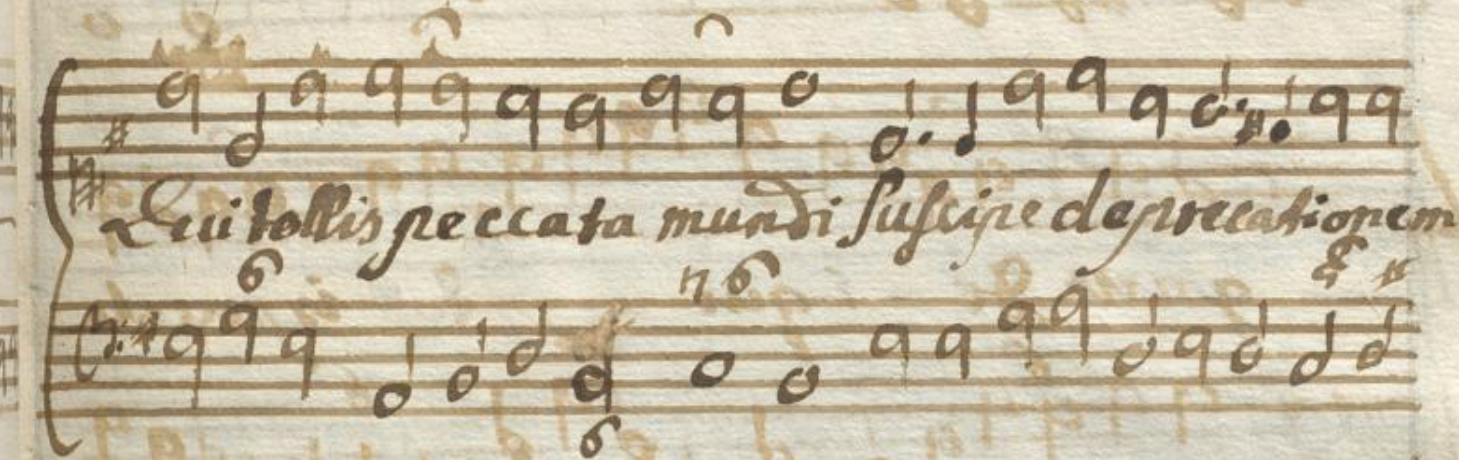 Qui tollis peccata mundi suscipe deprecationem
6 7 6
6